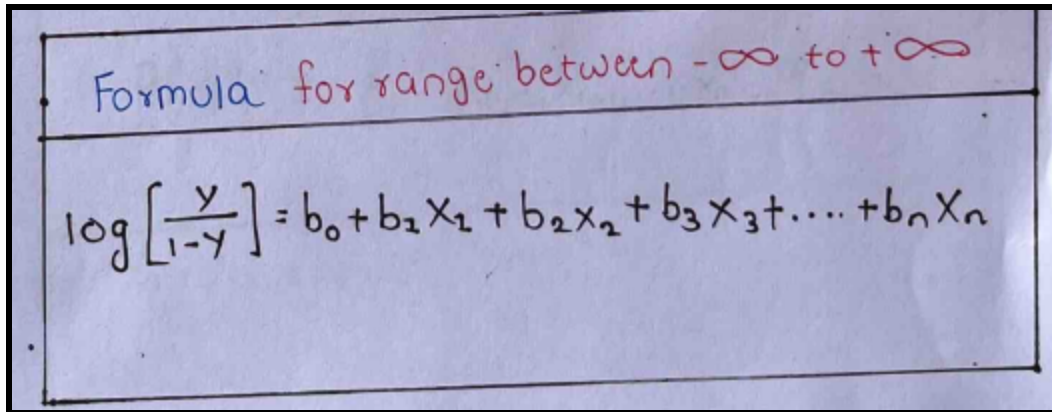 Formula for range between -∞ to +∞
log [y/1-y] = b₀ + b₁x₁ + b₂x₂ + b₃x₃ + .... + bₙxₙ